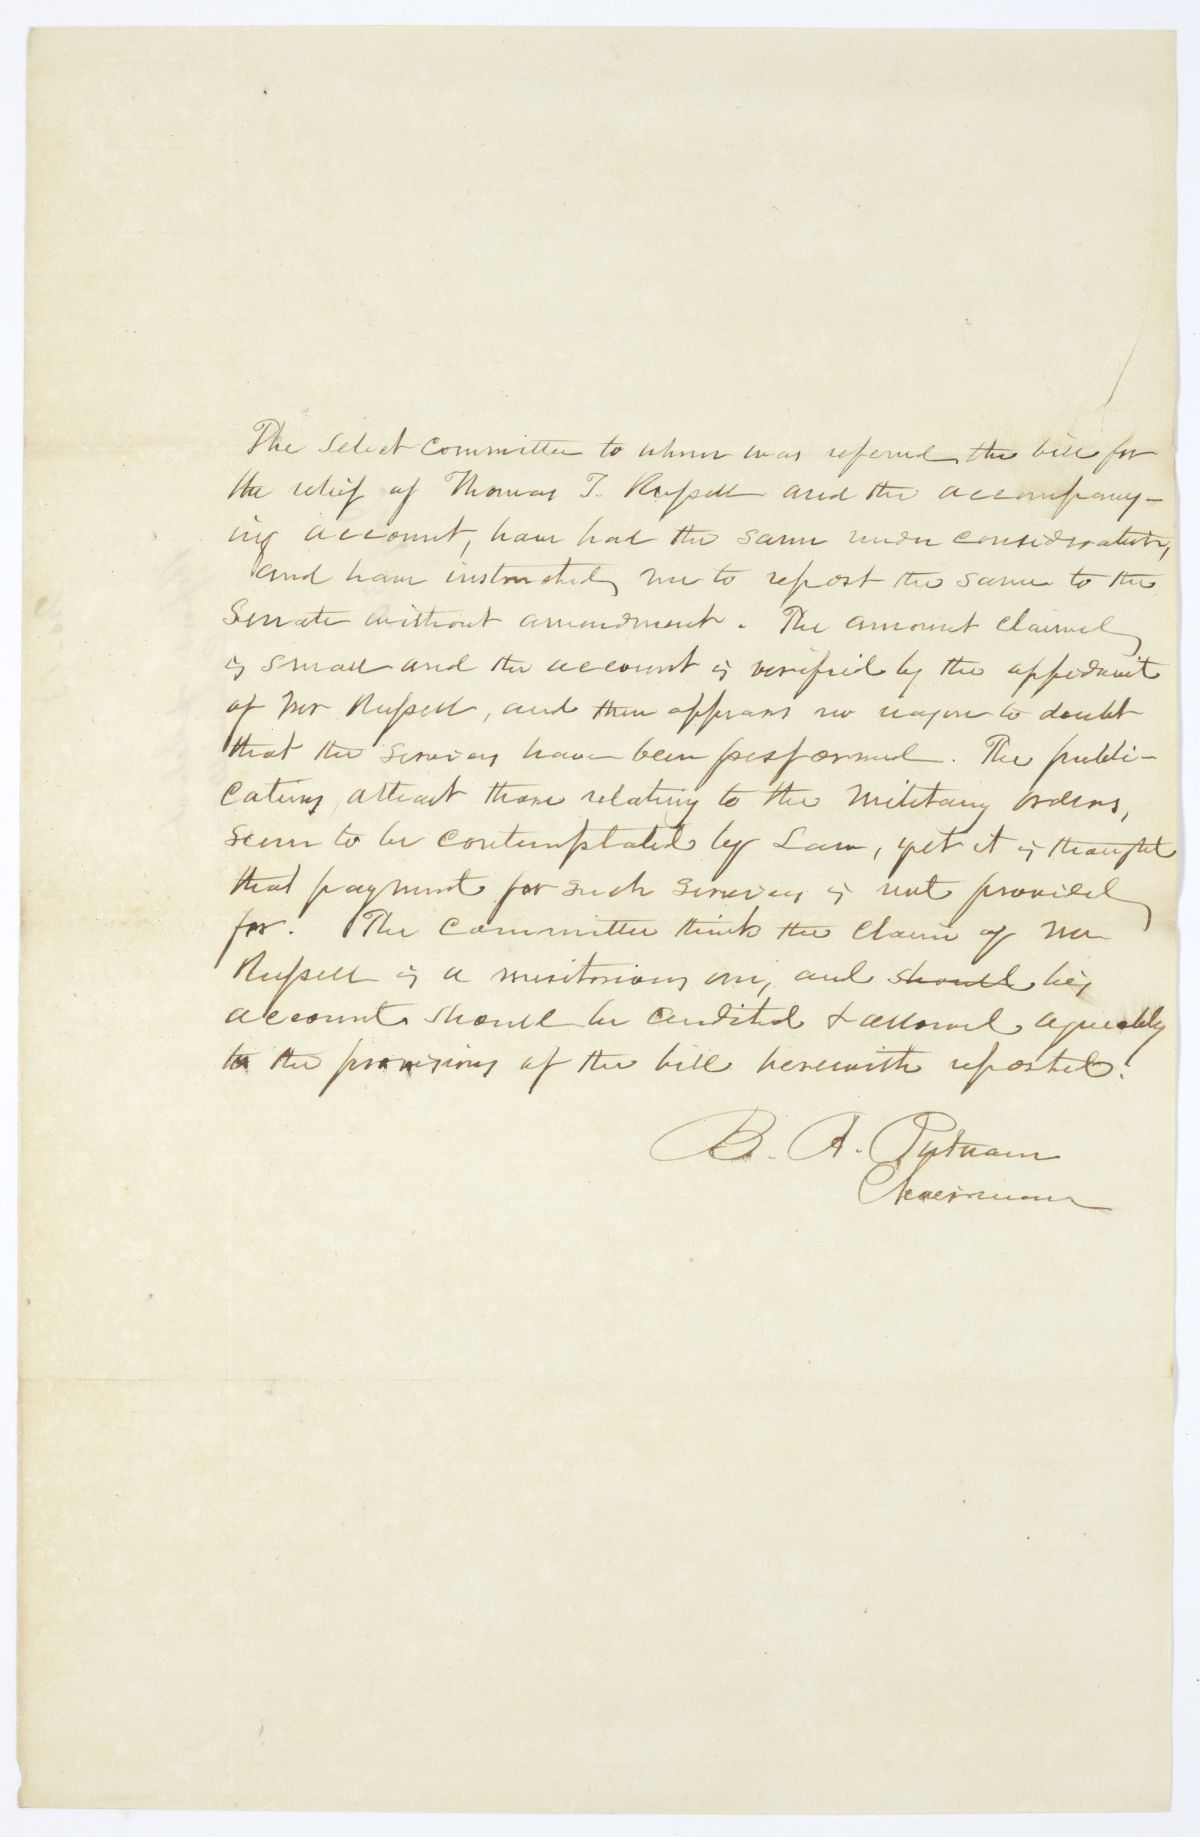 The Select Committee to whom was referred the bill for
the relief of Thomas T. Russell and the accompany-
ing account, have had the same under consideration,
and have instructed me to report the same to the
Senate without amendment. The amount claimed
is small and the account is verified by the affidavit
of Mr Russell, and there appears no reason to doubt
that the services have been performed. The publi-
cations, atleast those relating to the Military orders,
seem to be contemplated by Law, yet it is thought
that payment for such services is not provided
for. The Committee think the claim of Mr
Russell is a meritorious one, and should his
account should be audited & allowed agreeably
to the provisions of the bill herewith reported.
B. A. Putnam
Chairman